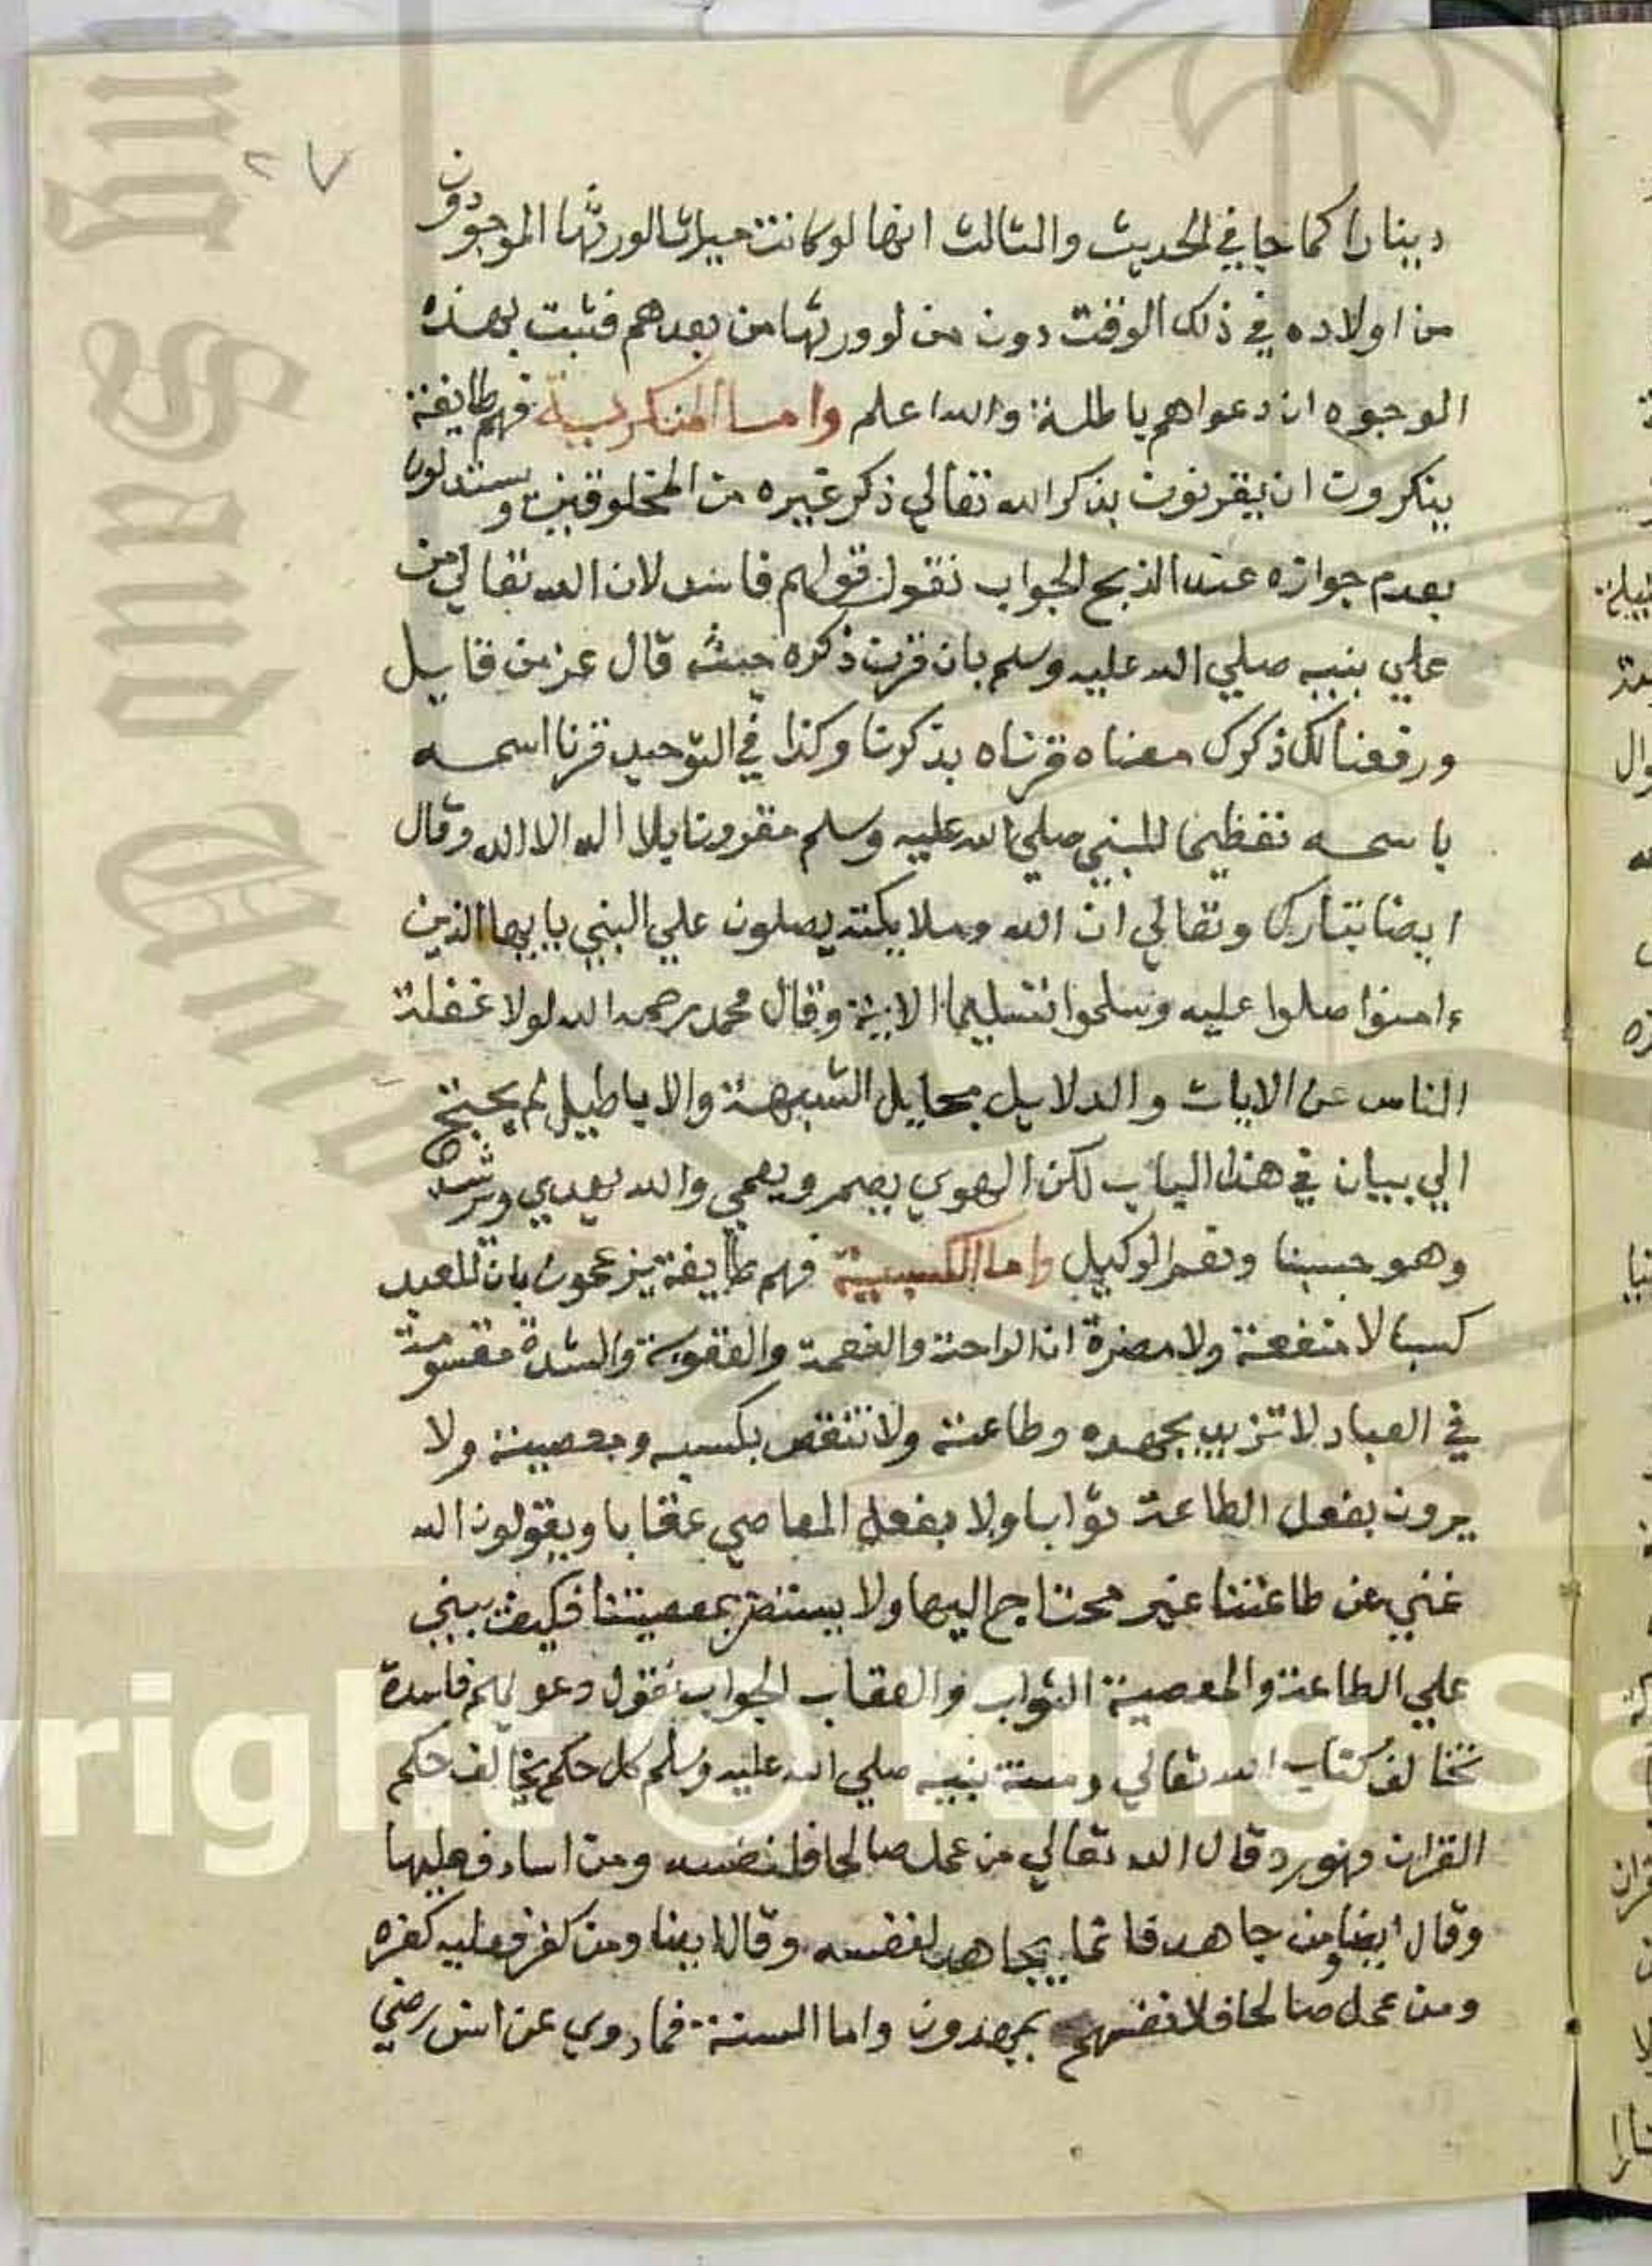 ٢٧
دينارا كما جا في الحديث والثالث انها لو كانت ميراثا لورثها الموجودون
من اولاده في ذلك الوقت دون من لو ورثها من بعدهم فثبت بهذه
الوجوه ان دعواهم باطلة والله اعلم واما المنكرسية فهم طايفة
ينكرون ان يقرنون بذكر الله تعالي ذكر غيره من المخلوقين ويستدلون
بعدم جوازه عند الذبح الجواب نقول قولهم فاسد لان الله تعالي من
علي نبيه صلي الله عليه وسلم بان قرن ذكره حيث قال عز من قايل
ورفعنا لك ذكرك معناه قرناه بذكرنا وكذا في التوحيد قرنا اسمه
باسمه تعظيما للنبي صلي الله عليه وسلم مقرونا بلا اله الا الله وقال
ايضا تبارك وتعالي ان الله وملايكته يصلون علي النبي يايها الذين
ءامنوا صلوا عليه وسلموا تسليما الاية وقال محمد رحمه الله لولا غفلة
الناس عن الايات والدلايل بحايل الشبهة والاباطيل لم يحتج
الي بيان في هذا الباب لكن الهوي يصم ويعمي والله يهدي ويرشد
وهو حسبنا ونعم الوكيل واما الكسبية فهم طايفة يزعمون بان للعبد
كسبا لا منفعة ولا مضرة ان الراحة والنعمة والعقوبة والشدة مقسومة
في العباد لا تزيد بجهده وطاعته ولا تنقص بكسبه ومعصيته ولا
يرون بفعل الطاعة ثوابا ولا بفعل المعاصي عقابا ويقولون الله
غني عن طاعتنا غير محتاج اليها ولا يستضر بمعصيتنا فكيف يبني
علي الطاعة والمعصية الثواب والعقاب الجواب نقول دعويهم فاسدة
تخالف كتاب الله تعالي وسنة نبيه صلي الله عليه وسلم كل حكم يخالف حكم
القران فهو رد قال الله تعالي من عمل صالحا فلنفسه ومن اساء فعليها
وقال ايضا ومن جاهد فانما يجاهد لنفسه وقال ايضا ومن كفر فعليه كفره
ومن عمل صالحا فلانفسهم يمهدون واما السنة فما روي عن انس رضي